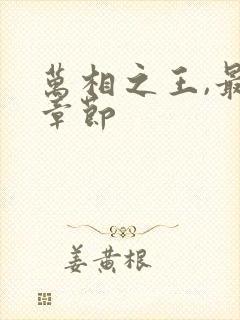 萬相之王,最
章節
姜黄根